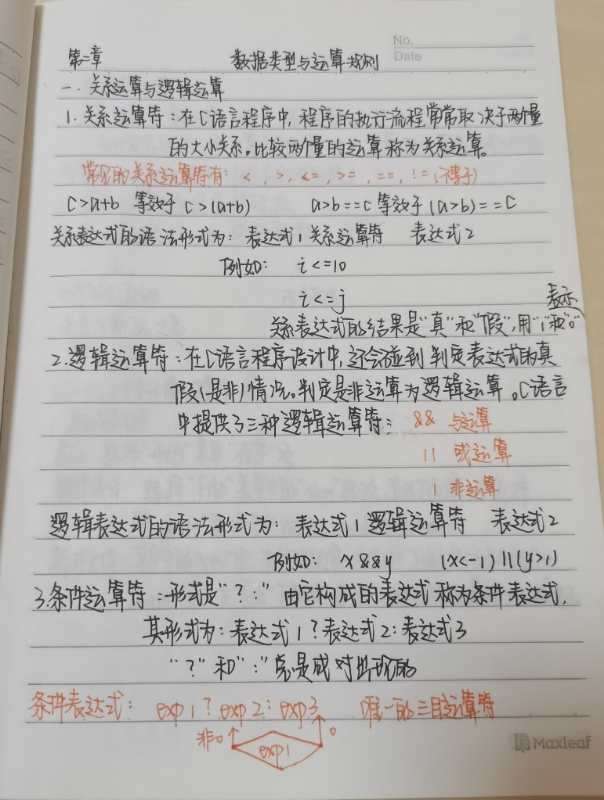 No.
Date
第二章 数据类型与运算规则
一、关系运算与逻辑运算
1. 关系运算符：在C语言程序中，程序的执行流程常常取决于两个量
的大小关系。比较两个量的运算称为关系运算。
常见的关系运算符有：<，>，<=，>=，==，!=(不等于)
c>a+b 等效于 c>(a+b) a>b==c 等效于 (a>b)==c
关系表达式的语法形式为：表达式1 关系运算符 表达式2
例如： i<=10
i<=j
关系表达式的结果是"真"和"假"，用"1"和"0"表示
2. 逻辑运算符：在C语言程序设计中，还会碰到判定表达式的真
假(是非)情况。判定是非运算为逻辑运算。C语言
中提供了三种逻辑运算符： && 与运算
|| 或运算
! 非运算
逻辑表达式的语法形式为：表达式1 逻辑运算符 表达式2
例如： x&&y (x<-1)||(y>1)
3. 条件运算符：形式是"？：" 由它构成的表达式称为条件表达式，
其形式为：表达式1？表达式2：表达式3
"？"和"："总是成对出现的
条件表达式： exp1？exp2：exp3 唯一的三目运算符
非0 exp1 0
Maxleaf